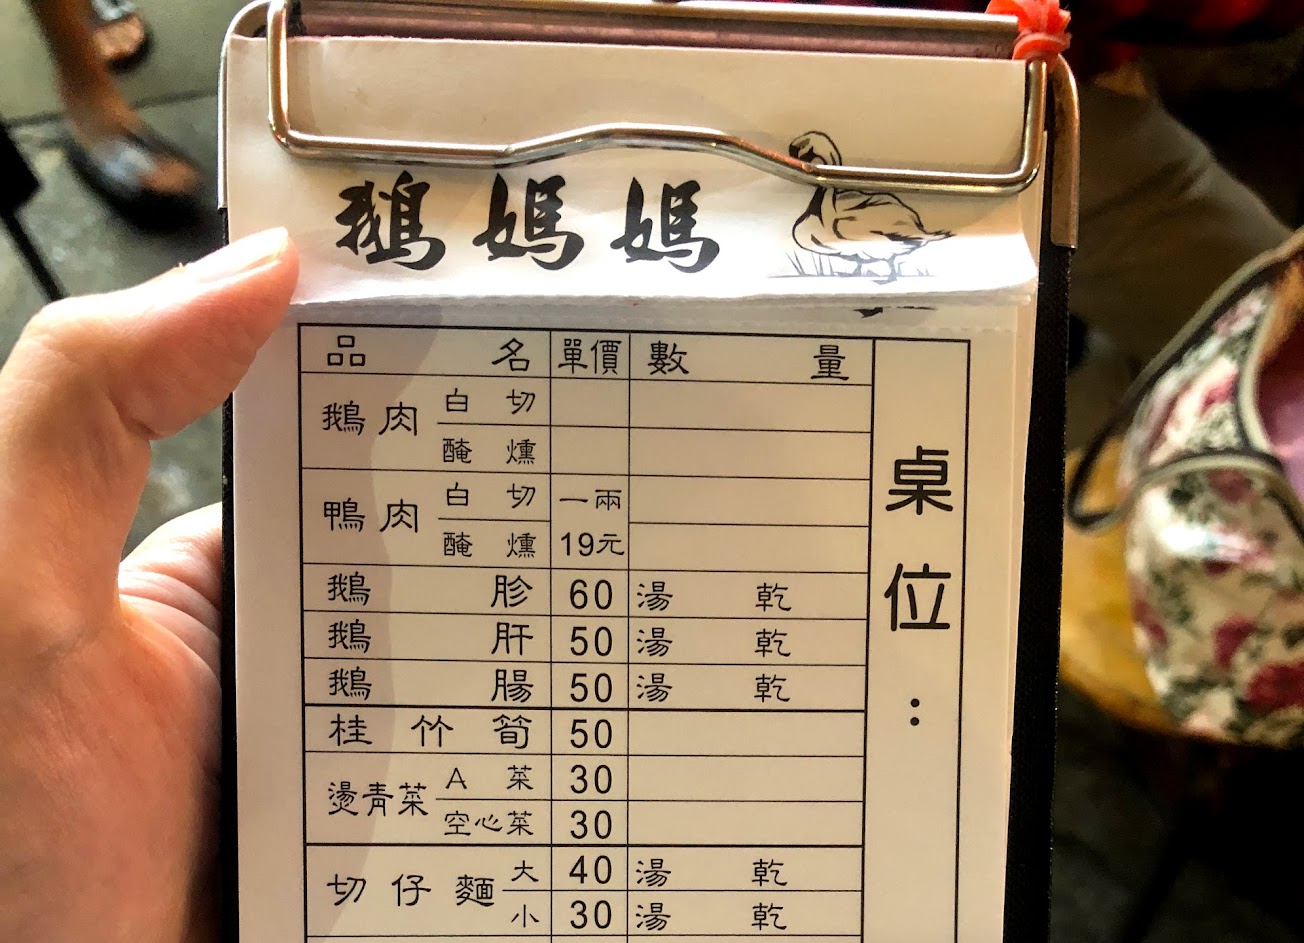 鵝媽媽
品名 單價 數量
鵝肉 白切
醃燻
鴨肉 白切 一兩
醃燻 19元
鵝胗 60 湯 乾
鵝肝 50 湯 乾
鵝腸 50 湯 乾
桂竹筍 50
燙青菜 A菜 30
空心菜 30
切仔麵 大 40 湯 乾
小 30 湯 乾
桌位: